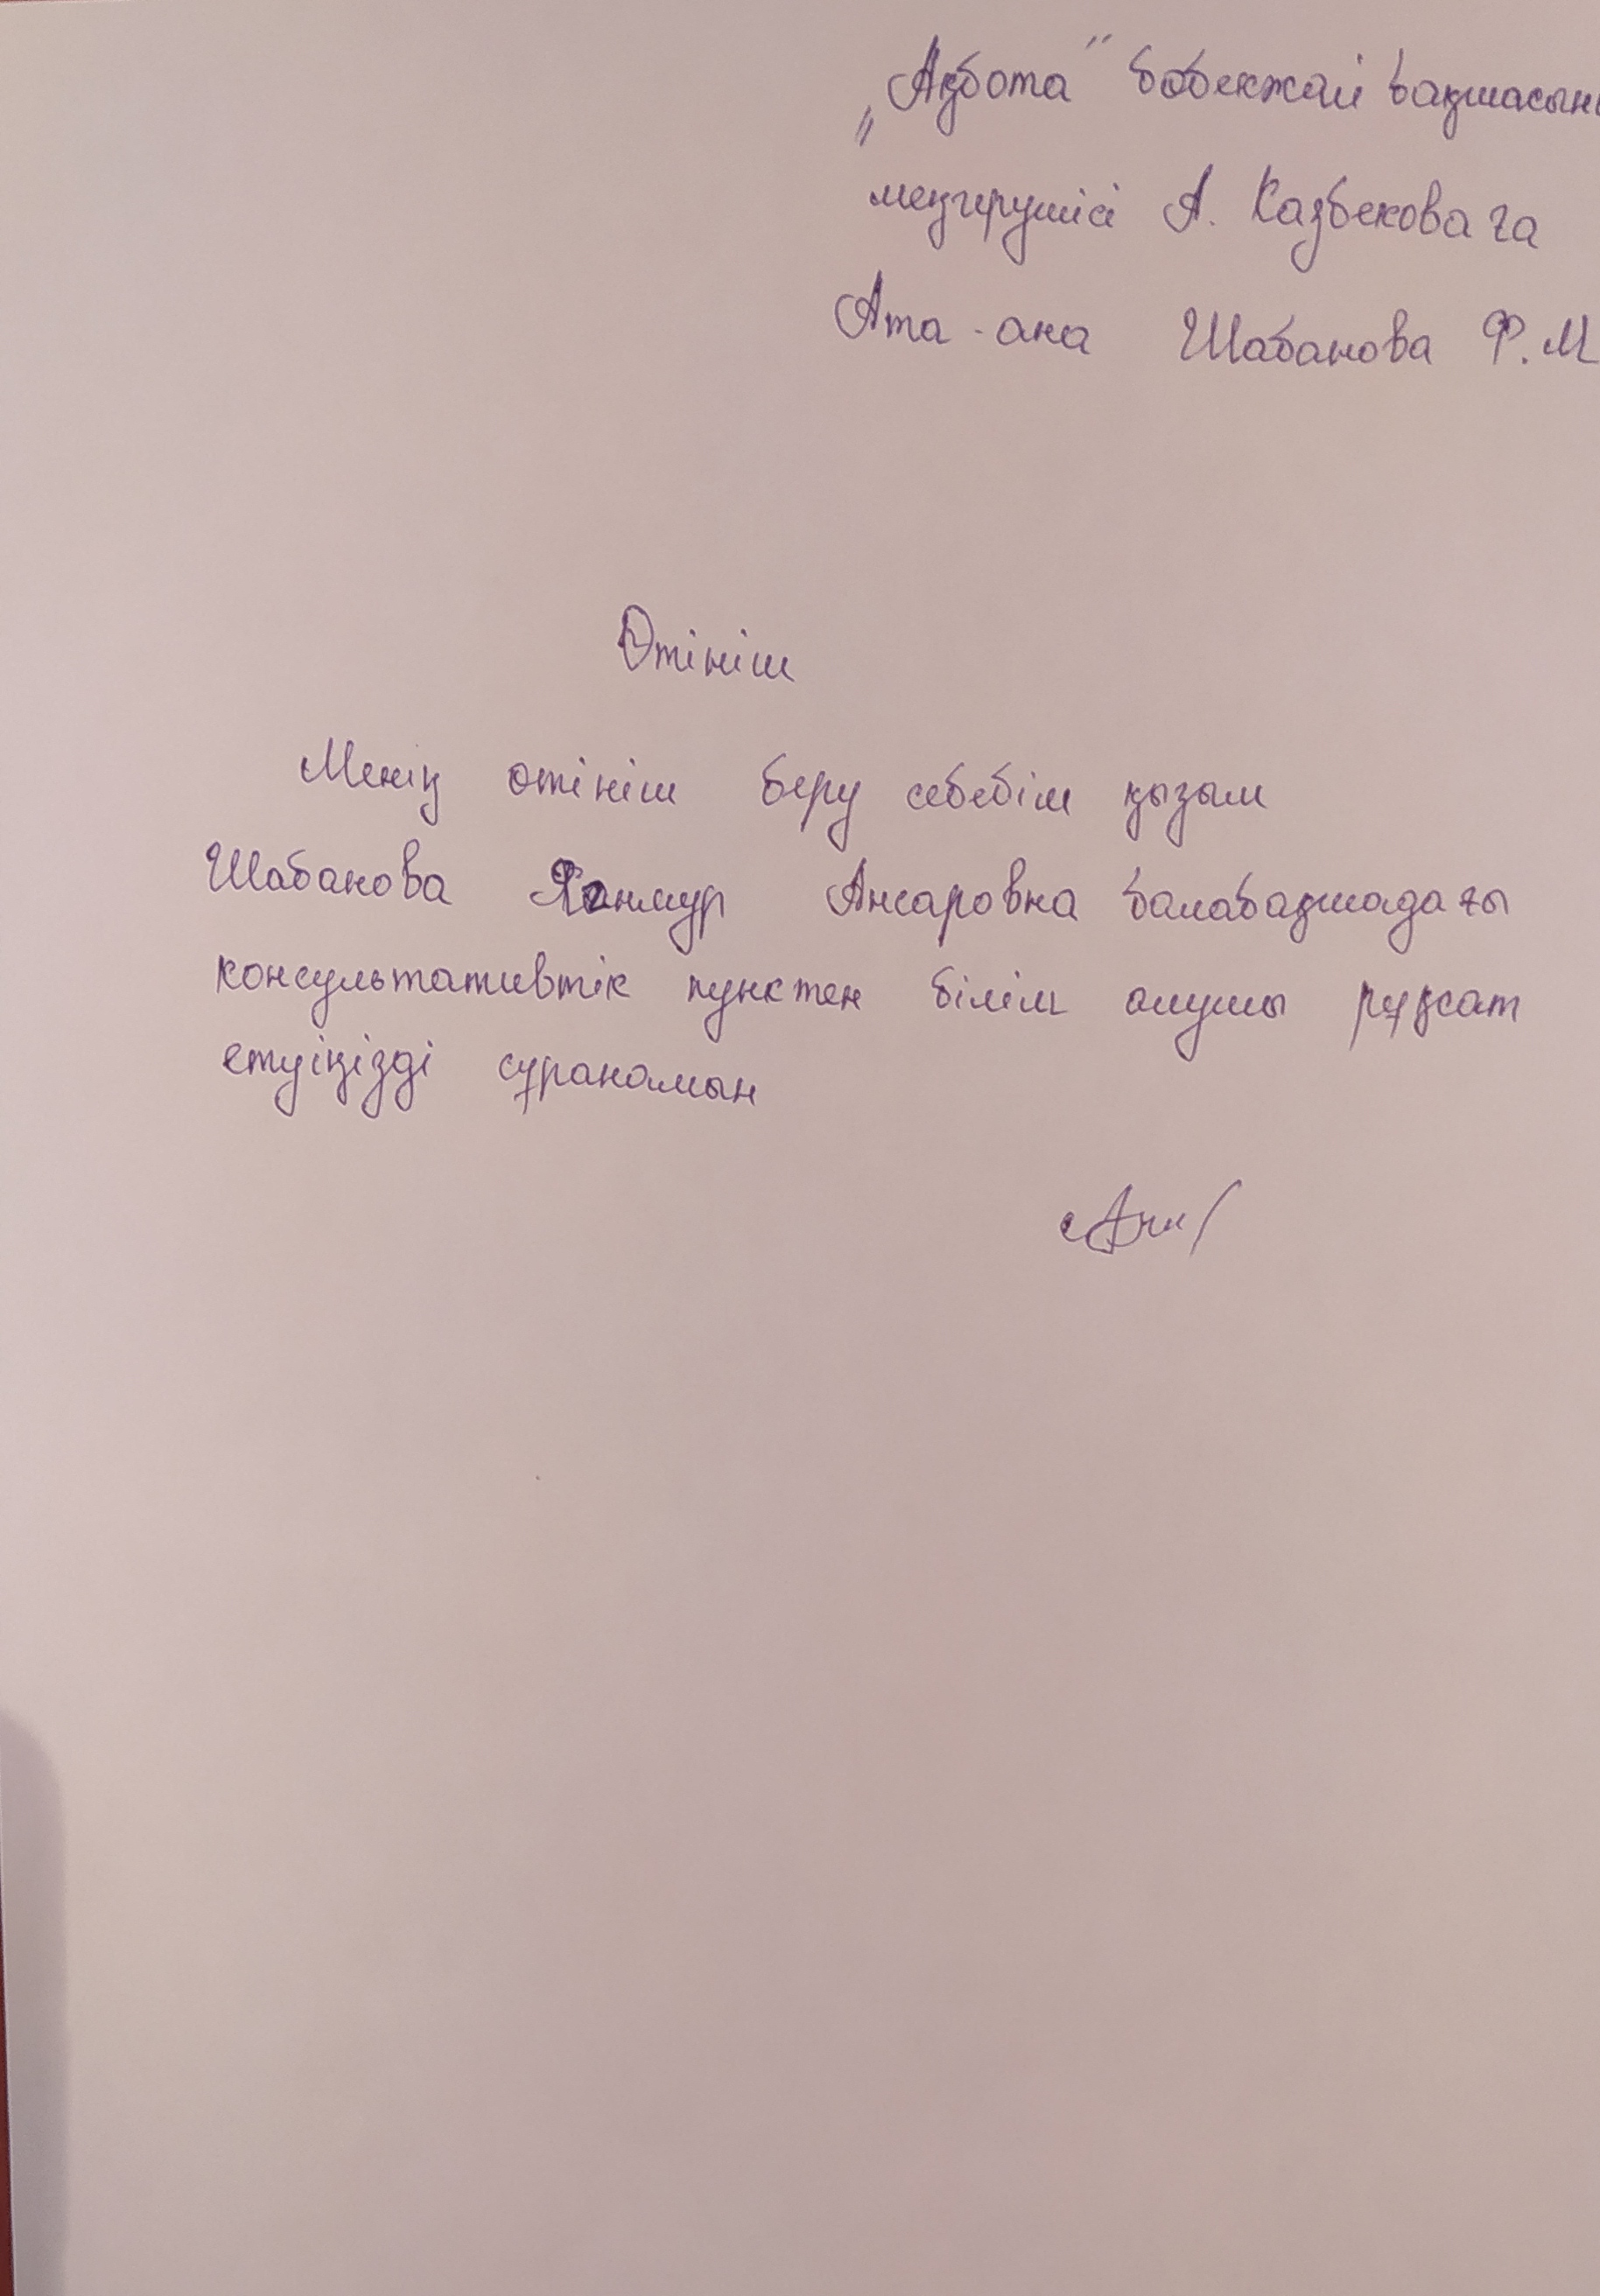 "Ақбота" бөбекжай бақшасының
меңгерушісі А. Казбековаға
Ата-ана Шабанова Ф.М
Өтініш
Менің өтініш беру себебім қызым
Шабанова Ансаровна балабақшадағы
консультативтік пунктен білім алушы рұқсат
етуіңізді сұранамын